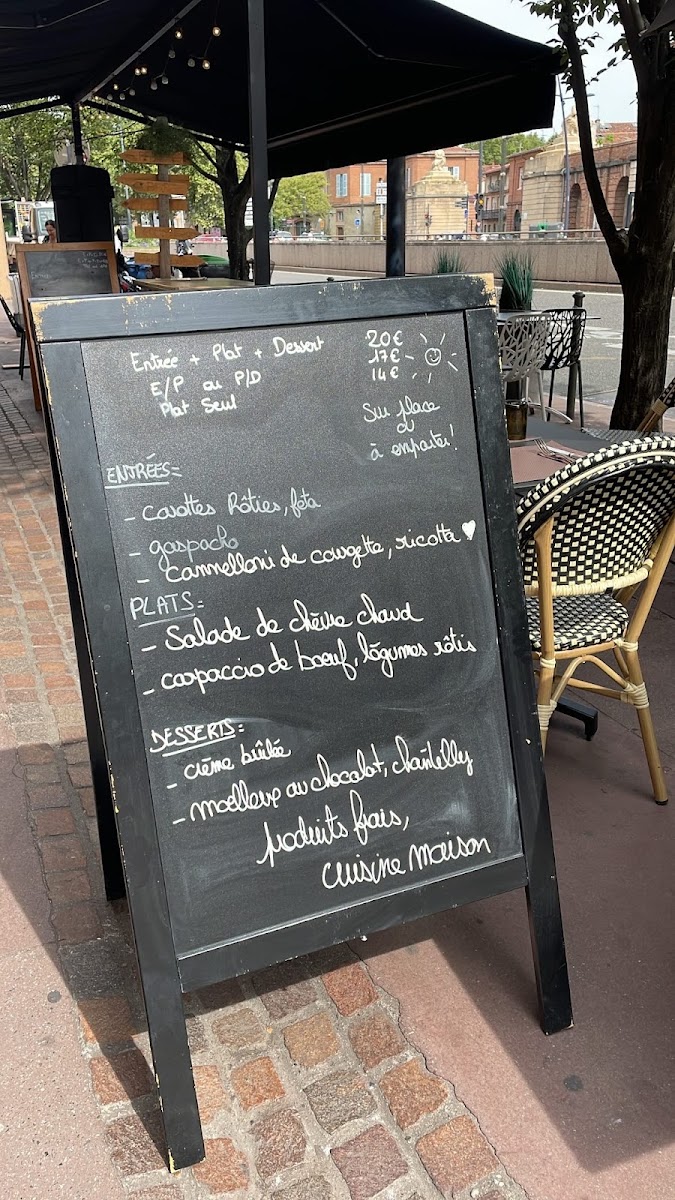 Entrée + Plat + Dessert 20€
E/P ou P/D 17€
Plat Seul 14€
Sur place
ou
à emporter!
ENTRÉES:
- carottes Rôties, feta
- gaspacho
- Cannelloni de courgette, ricotta ♥
PLATS:
- Salade de chèvre chaud
- carpaccio de boeuf, légumes rôtis
DESSERTS:
- crème brûlée
- moelleux au chocolat, chantelly
produits frais,
cuisine maison